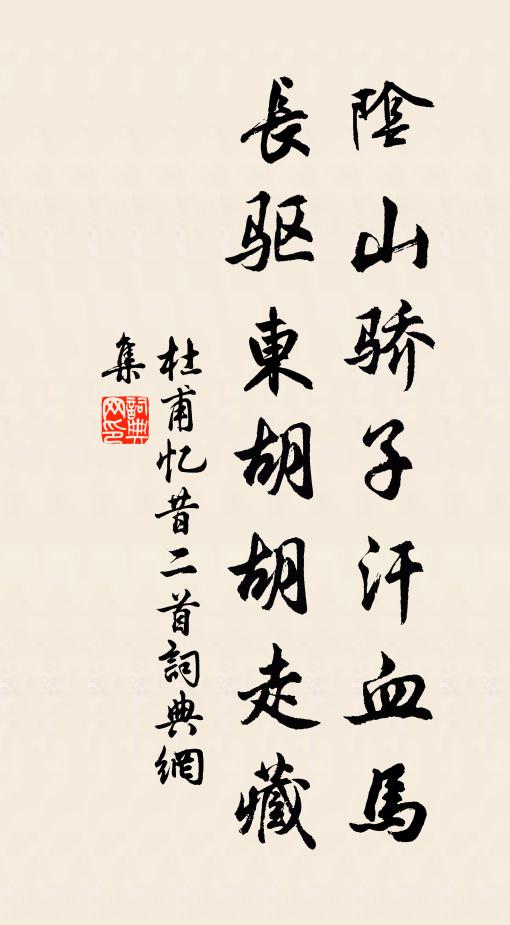 陰山骄子汗血馬
長驱東胡胡走藏
杜甫忆昔二首詞典網
集
詞典网印